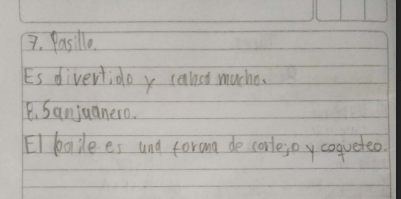 7. Pasillo.
Es divertido y mucho.
8. Sanjuanero.
El baile es una forma de cortejo y coqueteo.